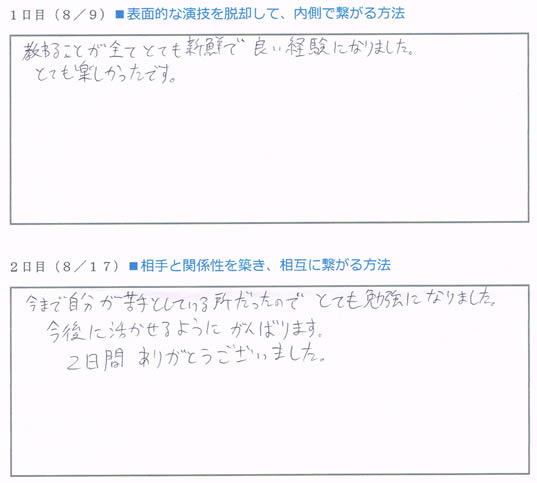 1日目(8/9)■表面的な演技を脱却して、内側で繋がる方法
教わることが全てとても新鮮で良い経験になりました。
とても楽しかったです。
2日目(8/17)■相手と関係性を築き、相互に繋がる方法
今まで自分が苦手としている所だったのでとても勉強になりました。
今後に活かせるようにがんばります。
2日間ありがとうございました。